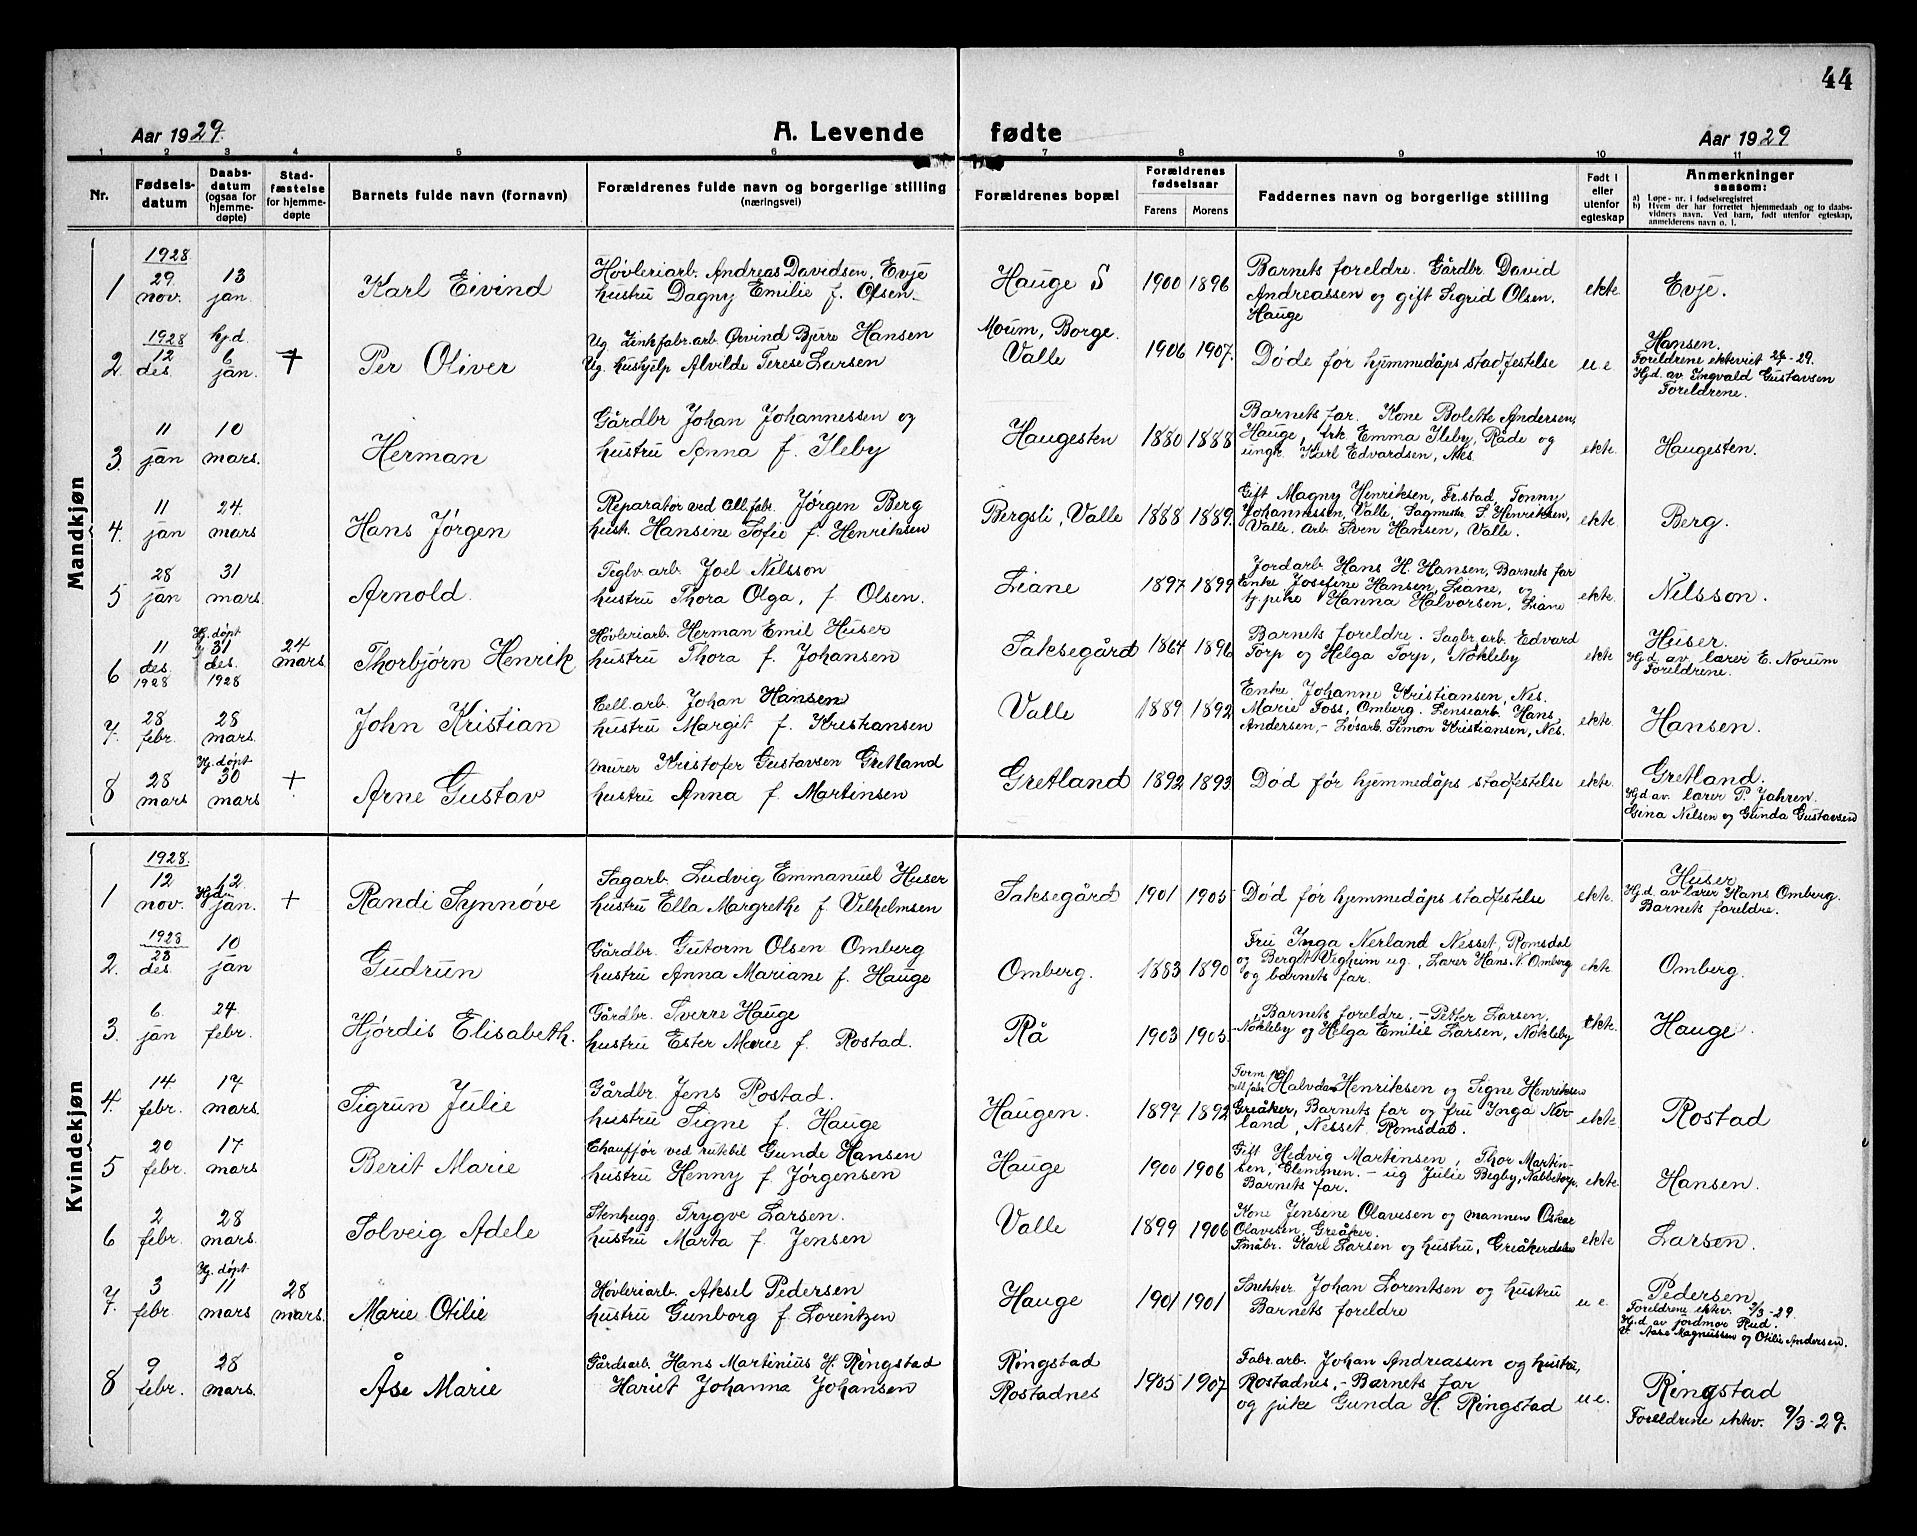 44
Aar 1929. A. Levende fødte Aar 1929
1 2 3 4 5 6 7 8 9 10 11
Nr. Fødsels-datum Daabs-datum (ogsaa for hjemme-døpte) Stad-fæstelse for hjemme-døpte Barnets fulde navn (fornavn) Forældrenes fulde navn og borgerlige stilling (næringsvei) Forældrenes bopæl Forældrenes fødselsaar Farens Morens Faddernes navn og borgerlige stilling Født i eller utenfor egteskap Anmerkninger saasom:
a) Løpe-nr. i fødselsregistret
b) Hvem der har forrettet hjemmedaab og to daabs-vidners navn. Ved barn, født utenfor egteskap, anmelderens navn o. l.
Mandkjøn
1 1928 29 nov. 13 jan. Karl Eivind Høvleriarb. Andreas Davidsen, Evje
hustru Dagny Emilie f. Olsen Hauge S 1900 1896 Barnets foreldre. Gårdbr. David
Andreassen og gift Sigrid Olsen.
Hauge ekte Evje.
2. 1928 12 des. hj.d. 6 jan. + Per Oliver Ug. Zinkfabr.arb. Øivind Bjerre Hansen
Ug. hushjelp Alvilde Terese Larsen Moum, Borge.
Valle 1906 1907. Døde før hjemmedåps stadfestelse u e Hansen.
Foreldrene ekteviet -29.
Hj.d. av Ingvald Gustavsen
Foreldrene.
3. 11 jan 10 mars. Herman Gårdbr Johan Johannessen og
hustru Anna f. Ileby Haugesten 1880 1888 Barnets far. Kone Bolette Andersen,
Hauge, frk. Emma Ileby, Råde og
ungk. Karl Edvardsen, Nes. ekte. Haugesten.
4. 11 jan 24. mars Hans Jørgen Reparatør ved Cell.fabr. Jørgen Berg
hust. Hansine Sofie f. Henriksen Bergsli, Valle 1888 1889. Gift Magny Henriksen, Fr.stad, Tonny
Johannessen, Valle, Sagmester S. Henriksen,
Valle. arb. Sven Hansen, Valle. ekte Berg.
5 28 jan 31 mars. Arnold. Teglv.arb. Joel Nilsson
hustru Thora Olga, f. Olsen. Liane 1897 1899 Jordarb. Hans H. Hansen, Barnets far
Enke Josefine Hansen, Liane, og
pike Hanna Halvorsen, Liane ekte. Nilsson.
6 11 des. 1928 Hj. døpt 31 des. 1928 24 mars. Thorbjørn Henrik Høvleriarb. Herman Emil Huser
hustru Thora f. Johansen Saksegård 1864 1896 Barnets foreldre. Sagbr. arb. Edvard
Torp og Helga Torp, Nøkleby ekte Huser.
Hj.d. av lærer E. Norum
Foreldrene.
7. 28 febr. 28 mars. John Kristian Cell.arb. Johan Hansen
hustru Margit f. Kristiansen Valle 1889 1892 Enke Johanne Kristiansen, Nes.
Marie Foss, Omberg. Lensearb. Hans
Andersen, – Løsarb. Simon Kristiansen, Nes. ekte. Hansen.
8 28 mars Hj. døpt 30 mars + Arne Gustav Murer Kristofer Gustavsen Gretland
hustru Anna f. Martinsen Gretland 1892 1893. Død før hjemmedåps stadfestelse ekte. Gretland.
Hj.d av. lærer P. Jahren.
Gina Nilsen og Gunda Gustavsen
Kvindekjøn
1 1928. 12 nov. Hj.d. 12 jan. + Randi Synnøve Sagarb. Ludvig Emmanuel Huser
hustru Ella Margrethe f. Vilhelmsen Saksegård 1901 1905 Død før hjemmedåps stadfestelse ekte. Huser
Hj.d. av lærer Hans Omberg.
Barnets foreldre.
2. 1928 23 des. 10 jan Gudrun Gårdbr. Gutorm Olsen Omberg
hustru Anna Mariane f. Hauge Omberg. 1883 1890 Fru Inga Nerland Nesset, Romsdal
og Bergit Vighum ug., Lærer Hans N. Omberg
og barnets far. ekte. Omberg.
3. 6. jan 24. febr. Hjørdis Elisabeth. Gårdbr. Sverre Hauge
hustru Ester Marie f. Rostad. Rå 1903 1905. Barnets foreldre. – Petter Larsen,
Nøkleby og Helga Emilie Larsen, Nøkleby ekte. Hauge.
4. 14 febr. 17 mars. Sigrun Julie Gårdbr. Jens Rostad.
hustru Signe f. Hauge Haugen. 1897 1892 Form. på cell.fabr. Halvdan Henriksen og Signe Henriksen
Greåker, Barnets far og fru Inga Ner-
land, Nesset, Romsdal. ekte. Rostad
5 20 febr. 17 mars Berit Marie Chauffør ved rutebil Gunde Hansen
hustru Henny f. Jørgensen Hauge 1900 1906 Gift Hedvig Martinsen, Thor Martin-
sen, Glemmen. – ug Julie Bigby, Nabbetorp.
Barnets far. ekte. Hansen.
6 2 febr. 28 mars. Solveig Adele Stenhugg. Trygve Larsen.
hustru Marta f. Jensen Valle 1899 1906 Kone Jensine Olavesen og mannen Oskar
Olavesen, Greåker.
Småbr. Karl Larsen og hustru, Greåkerdalen ekte Larsen.
7. 3 febr Hj. døpt 11 mars 28 mars. Marie Otilie Høvleriarb. Aksel Pedersen
hustru Gunborg f. Lorentzen Hauge 1901 1901 Snekker Johan Lorentsen og hustru
Barnets foreldre u e. Pedersen
Foreldrene ektev. 9/3-29.
Hj.d av jordmor Rud.
V. Aase Magnussen og Otilie Andersen.
8 9 febr. 28 mars. Åse Marie Gårdsarb. Hans Martinius H. Ringstad
Hariet Johanna Johansen Ringstad
Rostadnes 1905 1907 Fabr.arb. Johan Andreassen og hustru,
Rostadnes, – Barnets far
og pike Gunda H. Ringstad u e. Ringstad
Foreldrene ektev. 9/3-29.